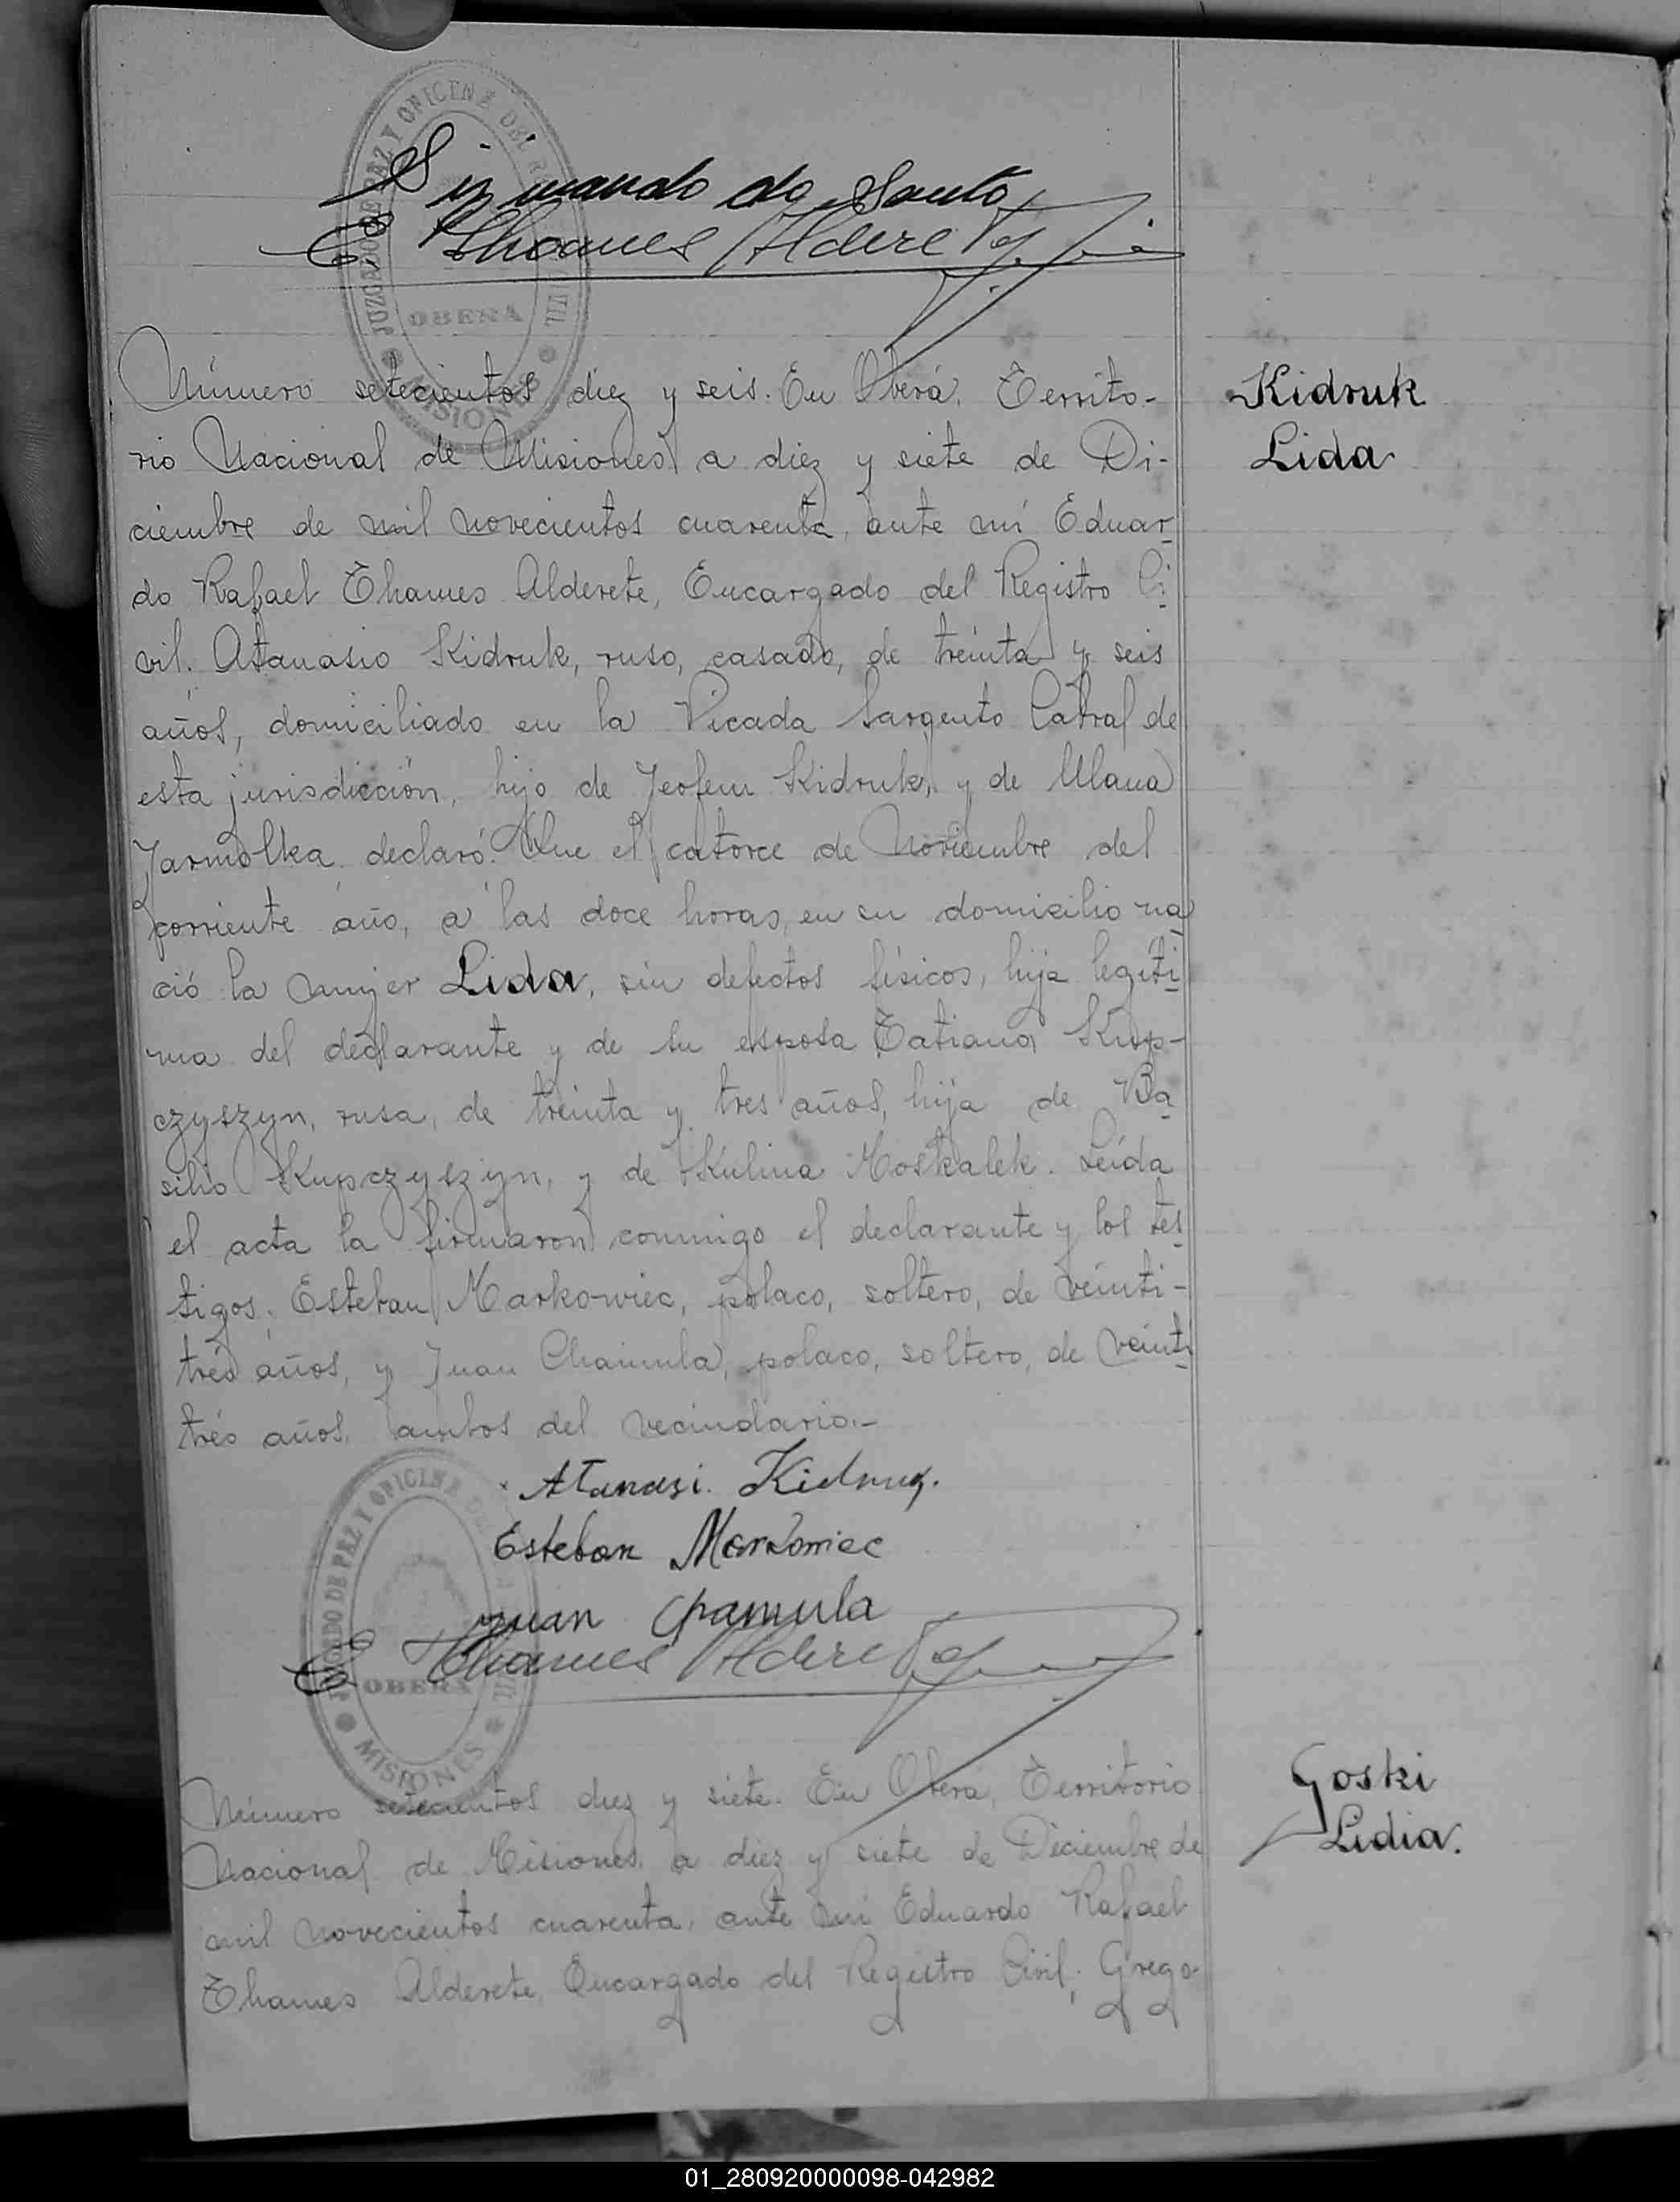 JUZGADO DE PAZ Y OFICINA DEL
OBERA
MISIONES
do Santo
E Thames Alderete
Número setecientos diez y seis. En Oberá, Territo-
rio Nacional de Misiones a diez y siete de Di-
ciembre de mil novecientos cuarenta, ante mí Eduar
do Rafael Thames Alderete, Encargado del Registro Ci
vil. Atanasio Kidruk, ruso, casado, de treinta y seis
años, domiciliado en la Picada Sargento Cabral de
esta jurisdicción, hijo de Jeofem Kidruk, y de Ulana
Jarmolka declaró: Que el catorce de Noviembre del
corriente año, a las doce horas, en su domicilio na
ció la mujer Lida, sin defectos físicos, hija legíti
ma del declarante y de su esposa Tatiana Kup-
czyszyn, rusa, de treinta y tres años, hija de Ba
silio Kupczyszyn, y de Kulina Moskalek. Leída
el acta la firmaron conmigo el declarante y los tes
tigos: Esteban Markowiec, polaco, soltero, de veinti-
trés años, y Juan Chamula, polaco, soltero, de veinti
trés años, ambos del vecindario.-
Kidruk
Lida
Atanasi. Kidruk.
Esteban Markowiec
Juan Chamula
E Thames Alderete
JUZGADO DE PAZ Y OFICINA
OBERA
MISIONES
Número setecientos diez y siete. En Oberá, Territorio
Nacional de Misiones, a diez y siete de Diciembre de
mil novecientos cuarenta, ante mí Eduardo Rafael
Thames Alderete, Encargado del Registro Civil; Grego-
Goski
Lidia.
01_280920000098-042982